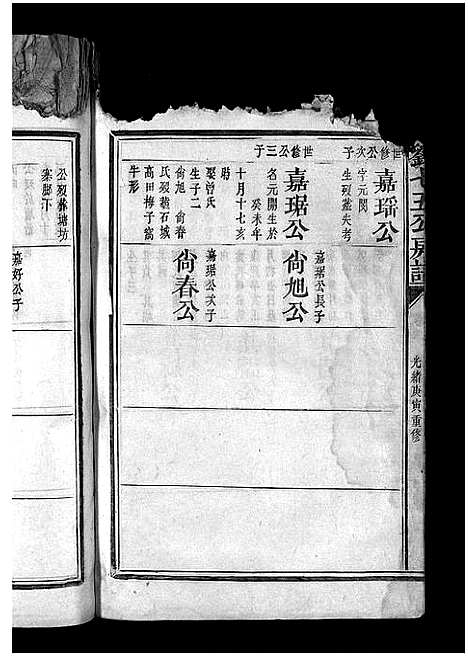 公房譜
光緒庚寅重修
世修公次子
嘉瑶公
字元閔
生歿葬失考
世修公三子
嘉琚公
名元開生於
癸未年
十月十七亥
時
娶曾氏
生子二
尙旭 尙春
氏歿葬石城
高田梅子窩
牛形
嘉琚公長子
尙旭公
嘉琚公次子
尙春公
塘坊
寨腳下
嘉好公子